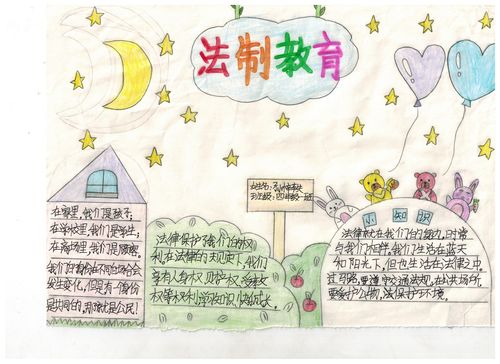 法制教育
姓名:
班级:四年级一班
小知识
在家里,我们是孩子;
在学校里,我们是学生;
在商场里,我们是顾客。
我们的身份在不同的场合会
发生变化,但是有一个身份
是共同的,那就是公民!
法律保护了我们的权
利在法律的规定下,我们
享有人身权 财产权 受教
权等权利 学习知识 快乐成长。
法律就在我们的身边,时常
与我们相伴。我们生活在蓝天
和阳光下,但也生活在法律之中。
过马路,要遵守交通法规,在公共场所,
要爱护公物,法保护环境。